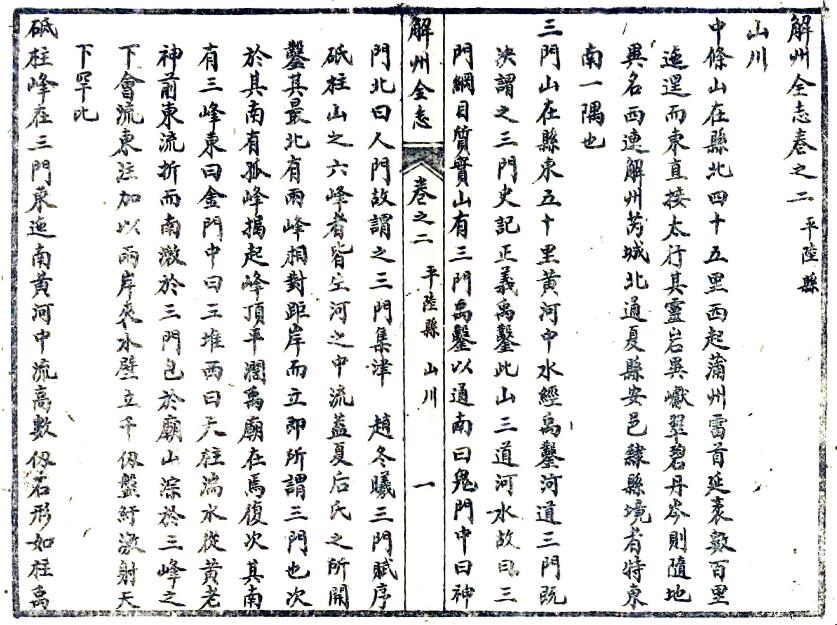 解州全志卷之二 平陸縣
山川
中條山在縣北四十五里西起蒲州雷首延袤數百里
迤逶而東直接太行其靈岩異巘翠碧丹岑則隨地
異名西連解州芮城北通夏縣安邑隸縣境者特東
南一隅也
三門山在縣東五十里黃河中水經禹鑿河道三門既
決謂之三門史記正義禹鑿此山三道河水故曰三
門綱目質實山有三門禹鑿以通南曰鬼門中曰神
解州全志 卷之二 平陸縣 山川 一
門北曰人門故謂之三門集津 趙冬曦三門賦序
砥柱山之六峰者皆生河之中流蓋夏后氏之所開
鑿其最北有兩峰相對距岸而立即所謂三門也次
於其南有孤峰揭起峰頂平濶禹廟在焉復次其南
有三峰東曰金門中曰三堆西曰天柱湍水從黃老
神前東流折而南激於三門包於廟山淙於三峰之
下會流東注加以兩岸夾水壁立千仭盤紆激射天
下罕比
砥柱峰在三門東迤南黃河中流高數仭石形如柱禹